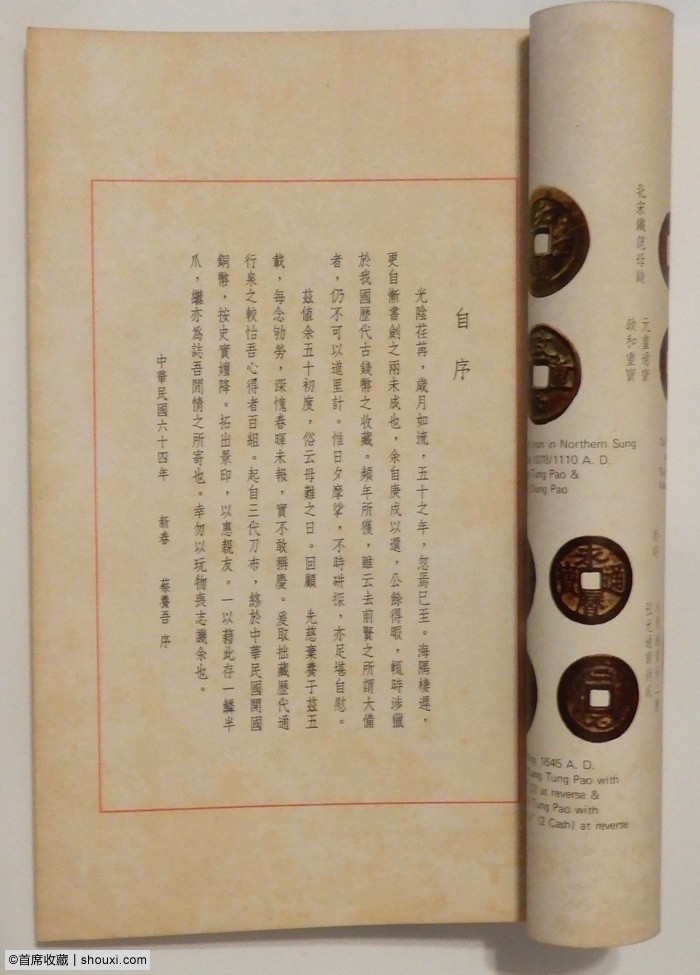 自序
光陰荏苒，歲月如流，五十之年，忽焉已至。海隅棲遲，
更自慚書劍之兩未成也，余自庚戌以還，公餘得暇，輒時涉獵
於我國歷代古錢幣之收藏。頻年所獲，雖云去前賢之所謂大備
者，仍不可以道里計。惟日夕摩挲，不時研探，亦足堪自慰。
茲值余五十初度，俗云母難之日。回顧　先慈棄養于茲五
載，每念劬勞，深愧春暉未報，實不敢稱慶。爰取拙藏歷代通
行泉之較怡吾心得者百組。起自三代刀布，終於中華民國開國
銅幣，按史實嬗降。拓出景印，以惠親友。一以藉此存一鱗半
爪，繼亦為誌吾閒情之所寄也。幸勿以玩物喪志譏余也。
中華民國六十四年　新春　蔡養吾　序
北宋鐵范母錢
元豐通寶
政和重寶
Iron in Northern Sung
1078/1110 A. D.
Tung Pao &
Chung Pao
永曆通寶
二分
1646 A. D.
Tung Pao with
at reverse &
Tung Pao with
(2 Cash) at reverse
©首席收藏 | shouxi.com